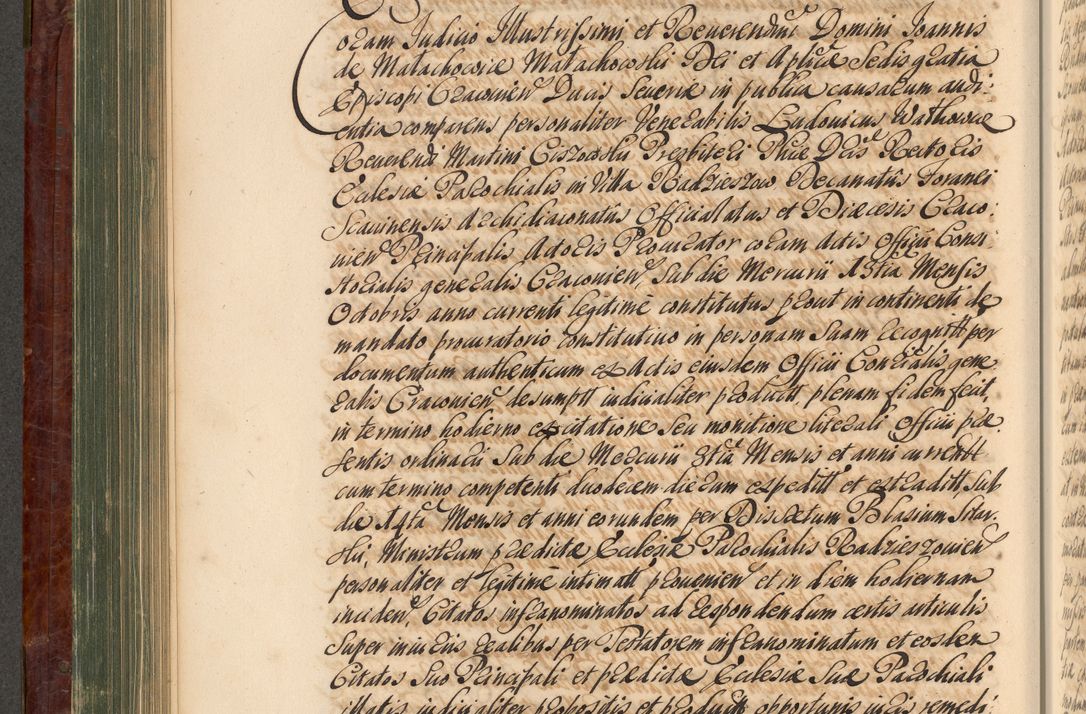 Coram Judicio Illustrissimi et Reverendissi Domini Joannis
de Małachowice Małachowski Dei et Aplicæ Sedis gratia
Episcopi Cracovien Ducis Severiæ in publica causarum audi:
entia comparens personaliter Venerabilis Ludovicus Wathowic
Reverendi Martini Ciszowski Presbiteri Rectoris
Eclesiæ Parochialis in Villa Radzieszow Decanatûs Foranei
Scavinensis Archidiaconatûs Officialatus et Diæcesis Craco:
vien Principalis Actoris Procurator coram Actis Officii Consi
storialis generalis Cracovien, sub die Mercurii Mensis
Octobris anno currenti legitimè constitutus prout in continenti de
mandato procuratorio constitutivo in personam suam recognitt per
documentum authenticum ex Actis eiusdem Officii Conss̃rialis gene
ralis Cracovien desumptt iudicialiter producitt, plenam fidem fecit,
in termino hodierno ex citatione seu monitione literali Officii præ
sentis ordinarii sub die Mercurii 8tiâ Mensis et anni currentt
cum termino competenti duodecem dierum expeditt et extraditt, sub
die 14ta Mensis et anni eorundem per Discretum Blasium Sitar
ski, Ministrum prædictæ Ecclesiæ Parochialis Radzieszovien
personaliter et legitimè intimatt, provenien et in diem hodiernam
inciden, Citatos infranominatos ad respondendum certis articulis
super iniuriis realibus per Testatorem infranominatum et eosdem
Citatos suo Principali et prædictæ Ecclesiæ suæ Parochiali
illatis iudicialiter propositis et producitt opportunis iuris remedi: